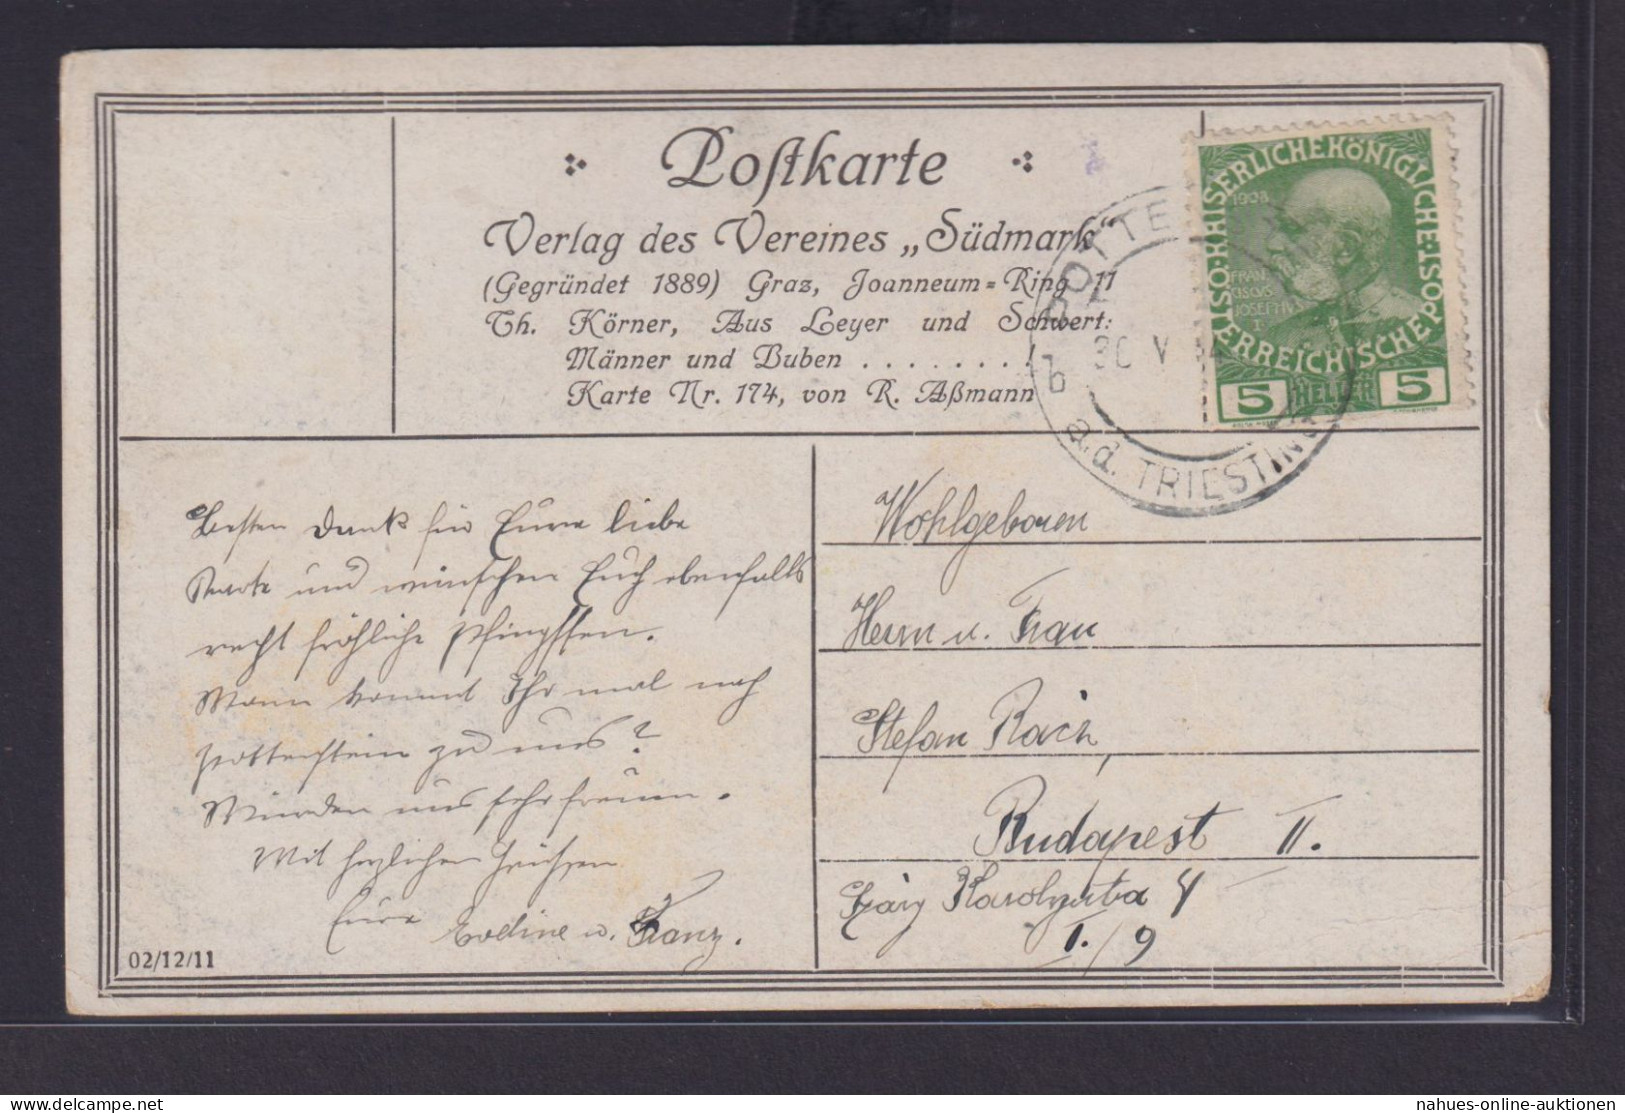 Postkarte
Verlag des Vereines „Südmark“
(Gegründet 1889) Graz, Joanneum=Ring 11
Th. Körner, Aus Leyer und Schwert:
Männer und Buben . . . . . . . . !
Karte Nr. 174, von R. Aßmann
ÖSTERREICHISCHE POST
KAISERLICHEKÖNIGLICHE
1908
FRAN
CISCVS
JOSEPHVS
I
5 HELLER 5
POTTE
b 30 V 14
a.d. TRIESTING
Besten Dank für Eure liebe
Karte und wünschen Euch ebenfalls
recht fröhliche Pfingsten.
Wann kommt Ihr mal nach
Pottenstein zu uns?
Würden uns sehr freuen.
Mit herzlichen Grüssen
Eure Eveline u. Franz.
02/12/11
Wohlgeboren
Herrn u. Frau
Stefan Rácz,
Budapest II.
I./9
nahues-online-auktionen